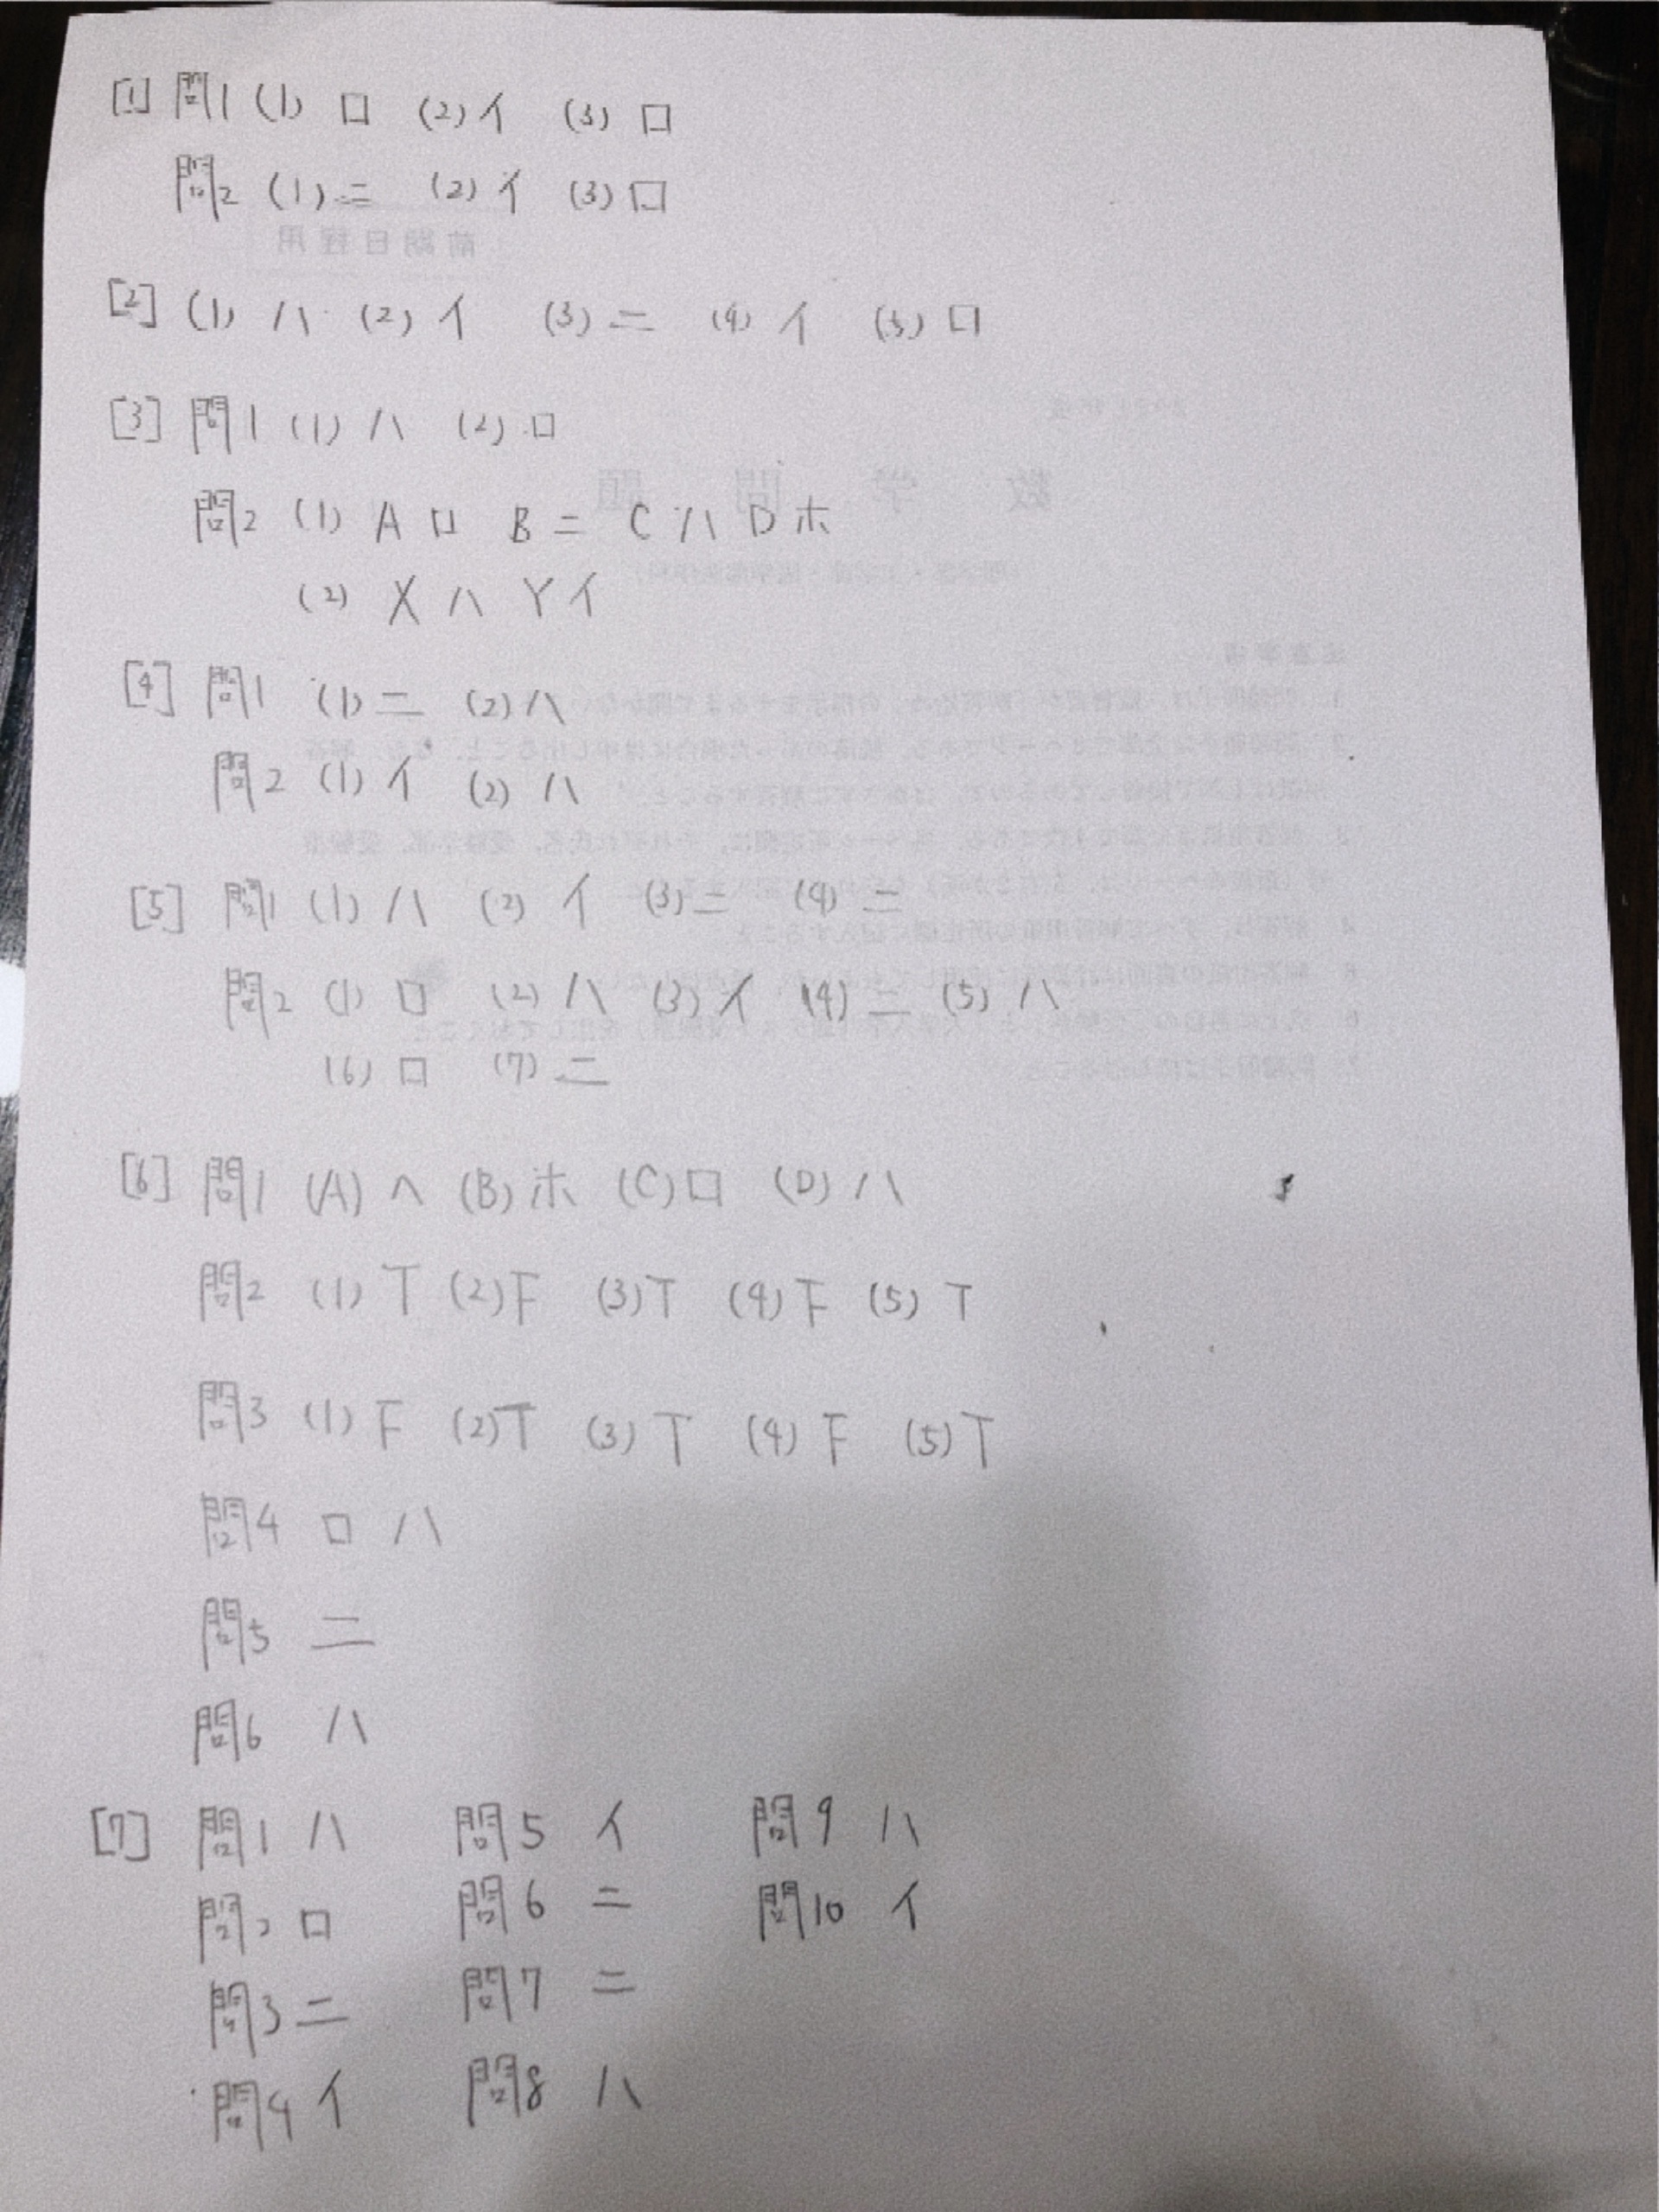 [1] 問1 (1) ロ (2) イ (3) ロ
問2 (1) ニ (2) イ (3) ロ
前期日程用
[2] (1) ハ (2) イ (3) ニ (4) イ (5) ロ
[3] 問1 (1) ハ (2) ロ
数学問題
問2 (1) A ロ B ニ C ハ D ホ
(2) X ハ Y イ
[4] 問1 (1) ニ (2) ハ
問2 (1) イ (2) ハ
[5] 問1 (1) ハ (2) イ (3) ニ (4) ニ
問2 (1) ロ (2) ハ (3) イ (4) ニ (5) ハ
(6) ロ (7) ニ
[6] 問1 (A) ヘ (B) ホ (C) ロ (D) ハ
問2 (1) T (2) F (3) T (4) F (5) T
問3 (1) F (2) T (3) T (4) F (5) T
問4 ロ ハ
問5 ニ
問6 ハ
[7] 問1 ハ 問5 イ 問9 ハ
問2 ロ 問6 ニ 問10 イ
問3 ニ 問7 ニ
問4 イ 問8 ハ